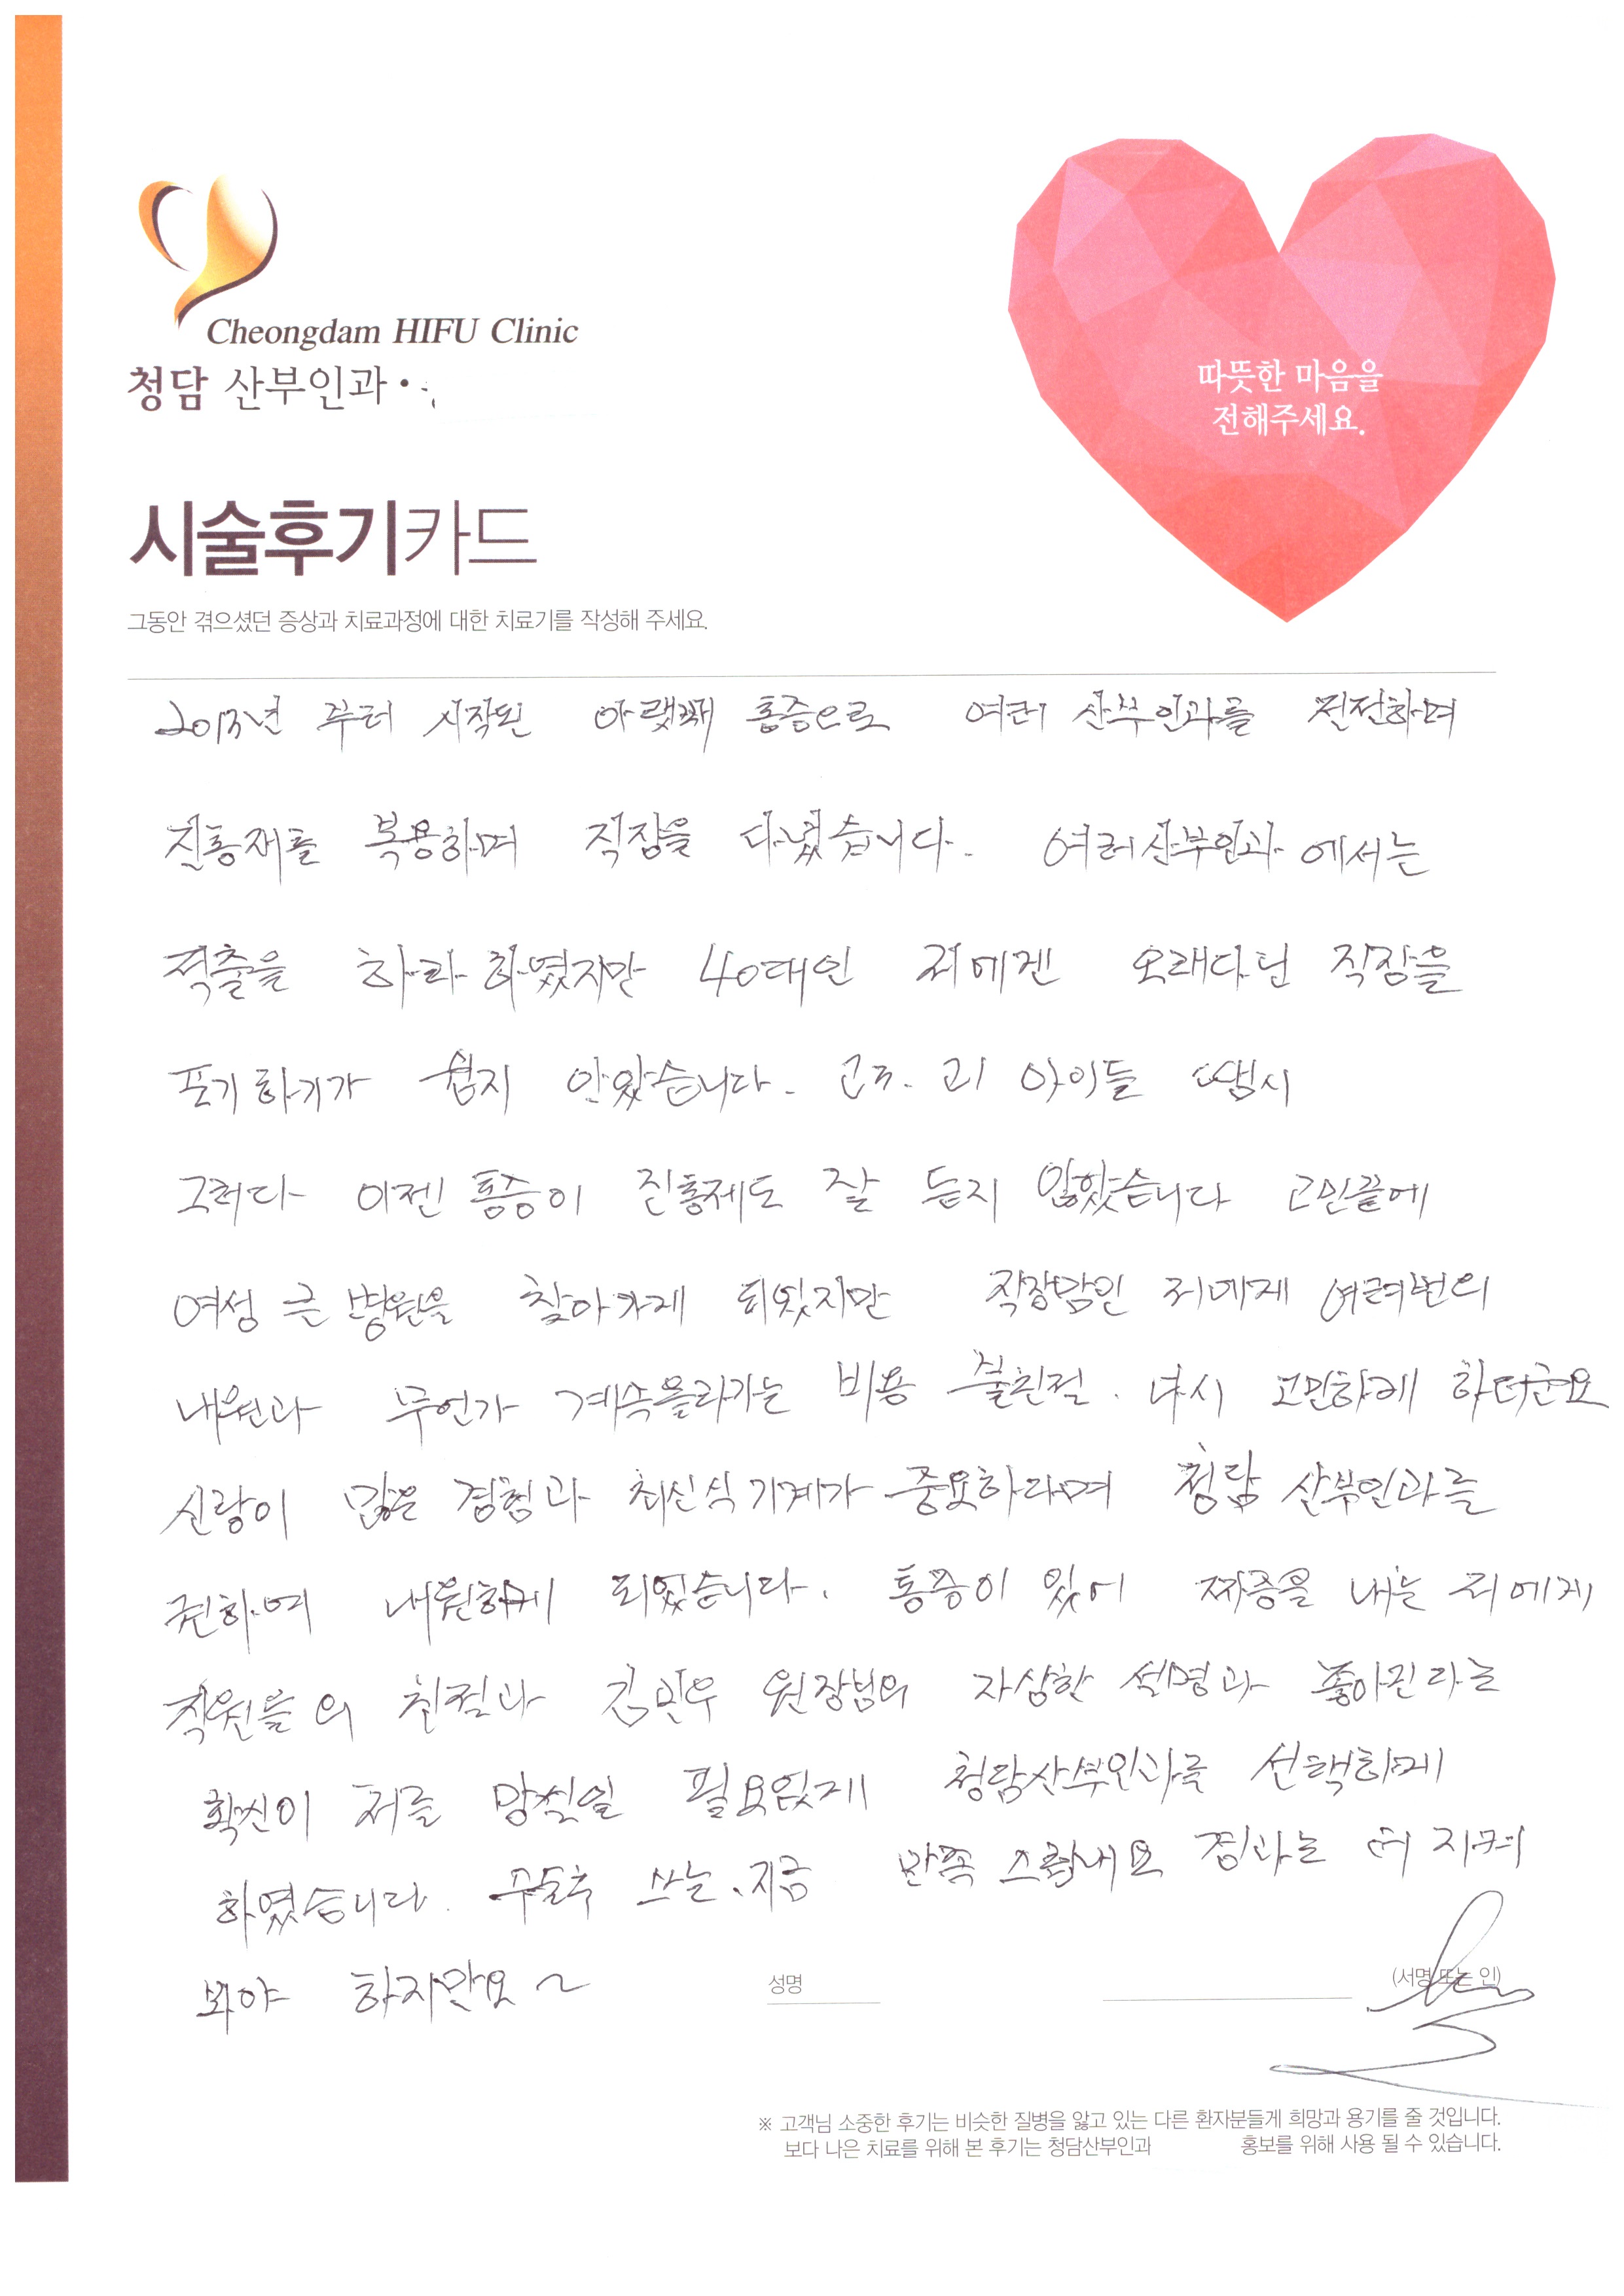 Cheongdam HIFU Clinic
청담 산부인과
따뜻한 마음을
전해주세요.
시술후기카드
그동안 겪으셨던 증상과 치료과정에 대한 치료기를 작성해 주세요.
부터 시작된 아랫빼 통증으로 여러 산부인과를 전전하며
진통재를 복용하며 직장을 다녔습니다. 여러산부인과에서는
적출을 하라 하였지만 40대인 저에겐 오래다닌 직장을
포기하기가 쉽지 안았습니다. 고3. 고1 아이들
그러다 이젠 통증이 진통제도 잘 듣지 않핬습니다 고민끝에
여성 큰 병원을 찾아가게 되었지만 직장맘인 저에게 여러번의
내원과 무언가 계속올라가는 비용 불친절. 다시 고민하게 하더군요
신랑이 많은 경험과 최신식 기계가 중요하다며 청담 산부인과를
권하며 내원하게 되었습니다. 통증이 있어 짜증을 내는 저에게
직원들의 친절과 김민우 원장님의 자상한 설명과 좋아진다는
확신이 저를 망설일 필요없게 청담산부인과를 선택하게
하였습니다. 수술후 쓰는. 지금 만족 스럽네요 경과는 더 지켜
봐야 하지만요~
성명
(서명 또는 인)
※ 고객님 소중한 후기는 비슷한 질병을 앓고 있는 다른 환자분들게 희망과 용기를 줄 것입니다.
보다 나은 치료를 위해 본 후기는 청담산부인과 홍보를 위해 사용 될 수 있습니다.